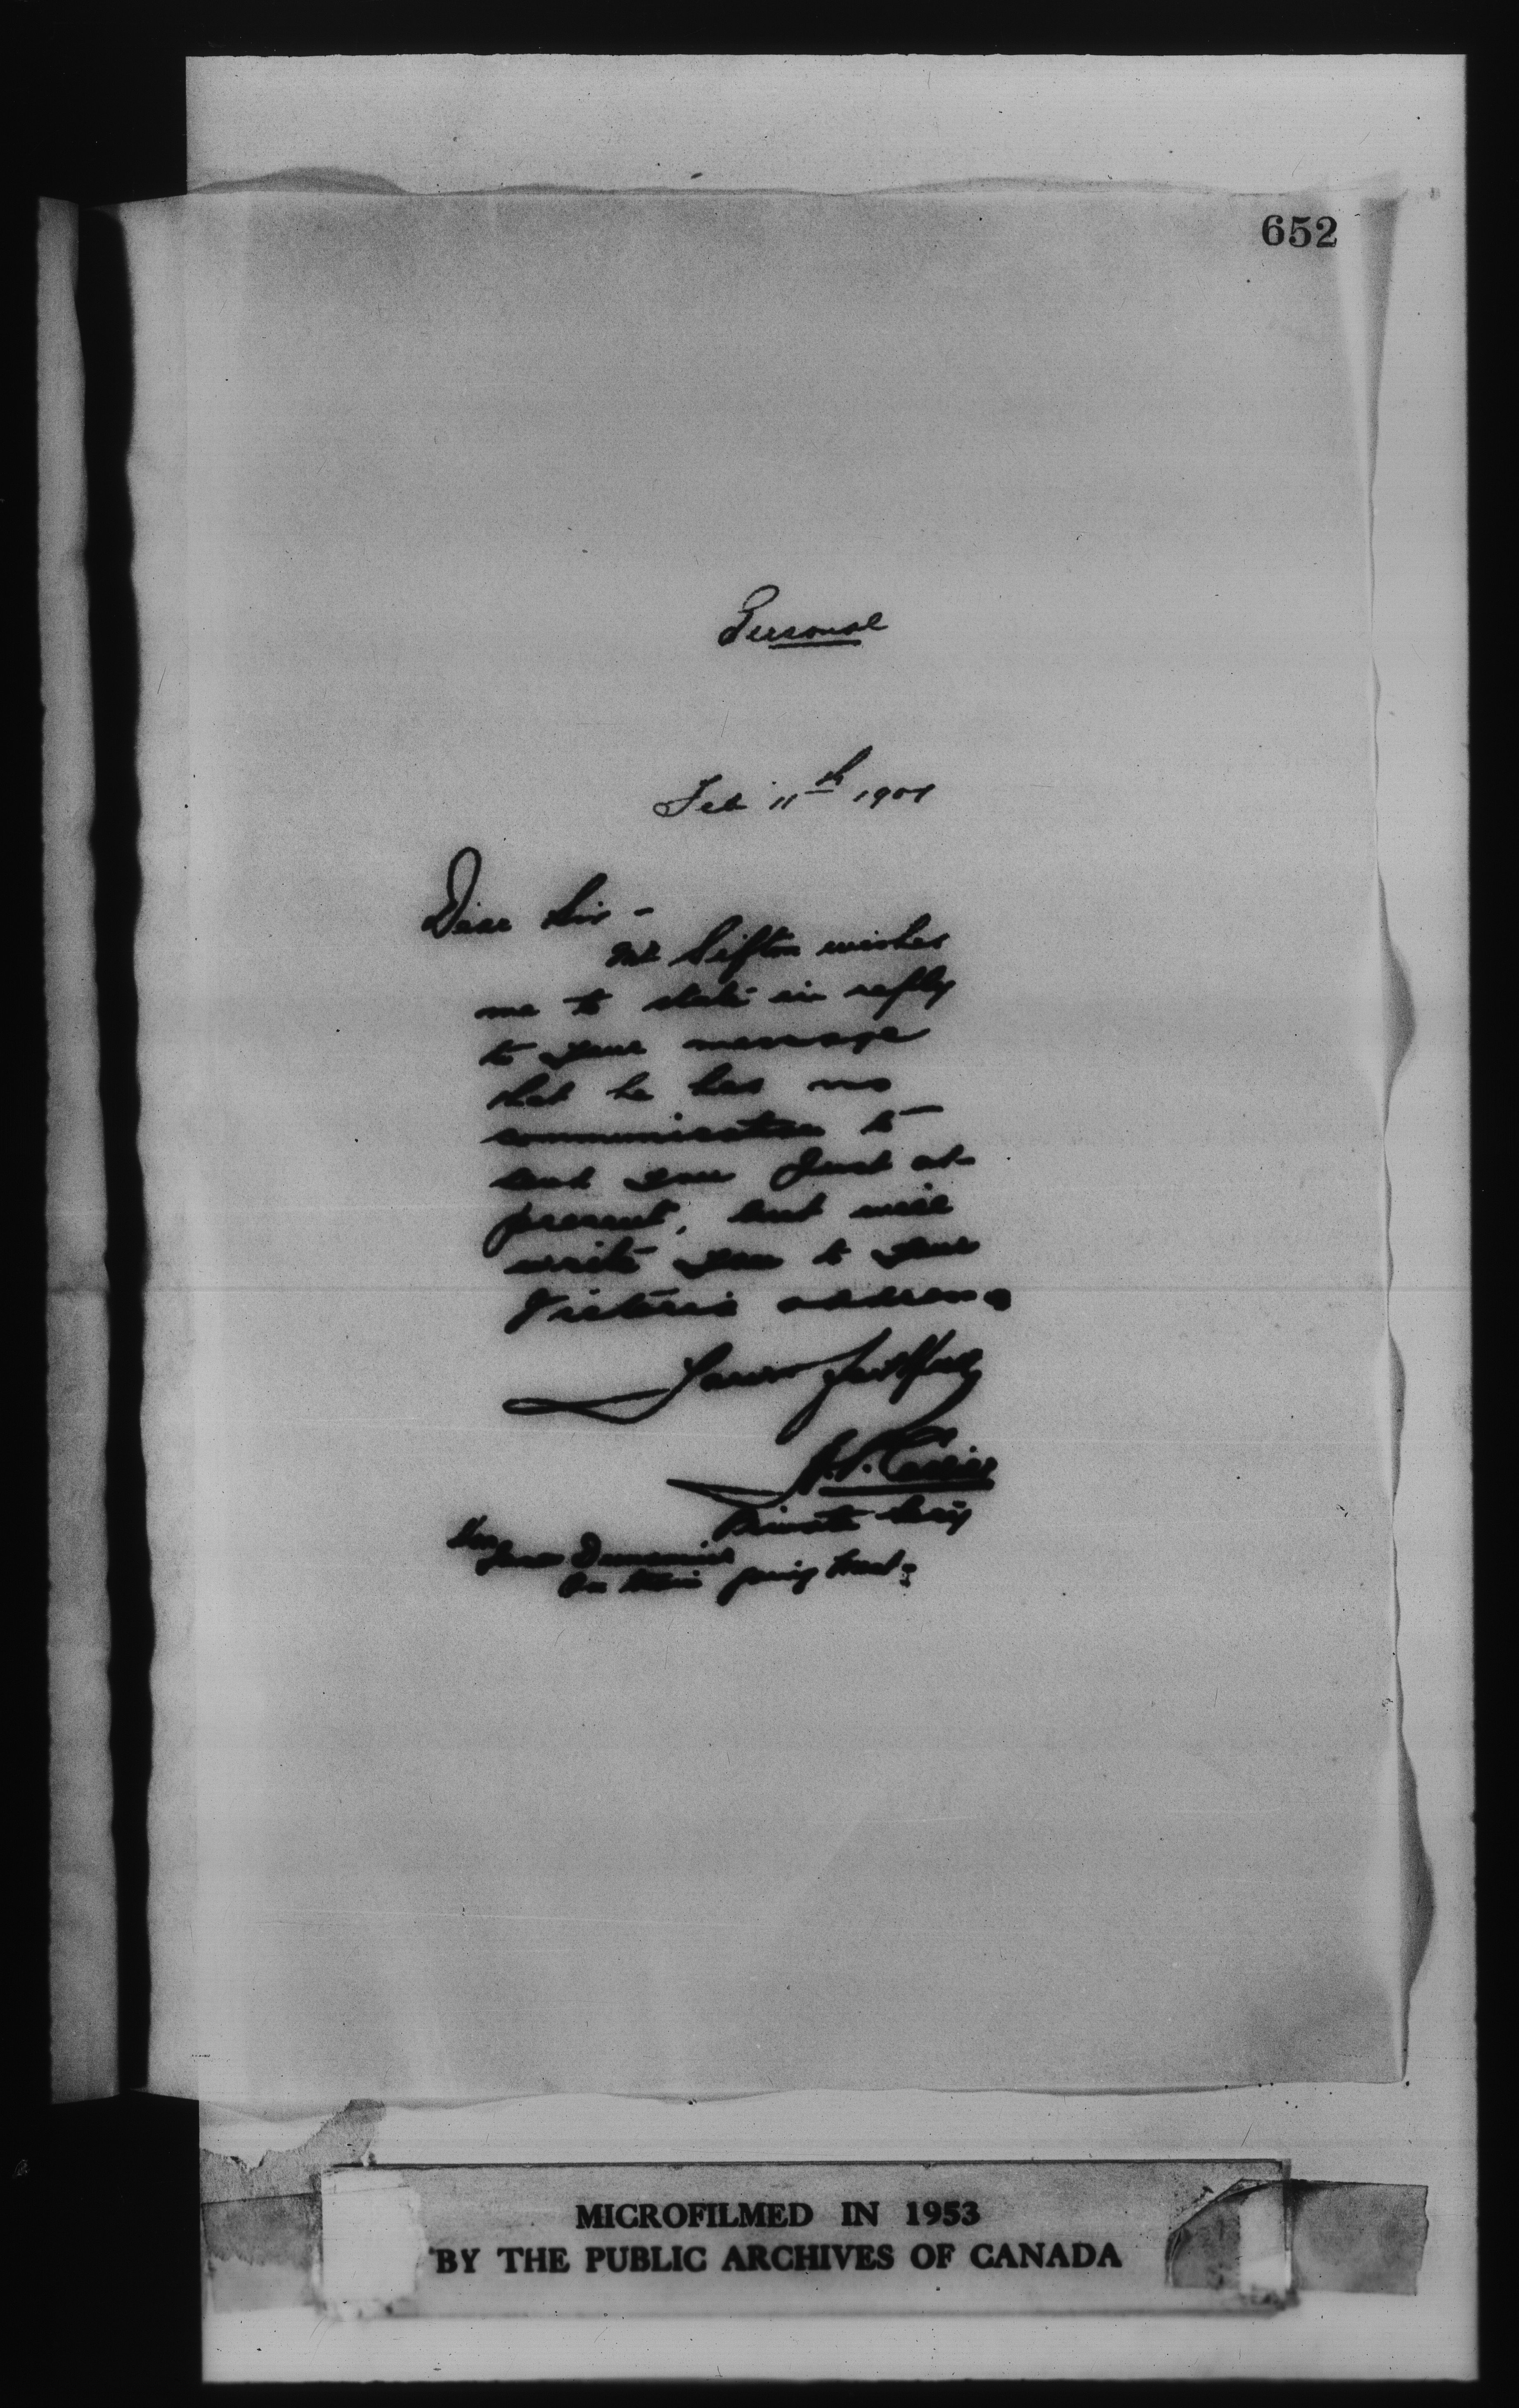 652
Personal
Feb 11th 1901
Dear Sir -
Mr Sifton wishes
me to state in reply
to your message
that he has no
communication to
send you just at
present, but will
write you to your
Victoria address.
Yours faithfully
Private Secy
Hon
James Dunsmuir
On train going West.
MICROFILMED IN 1953
BY THE PUBLIC ARCHIVES OF CANADA